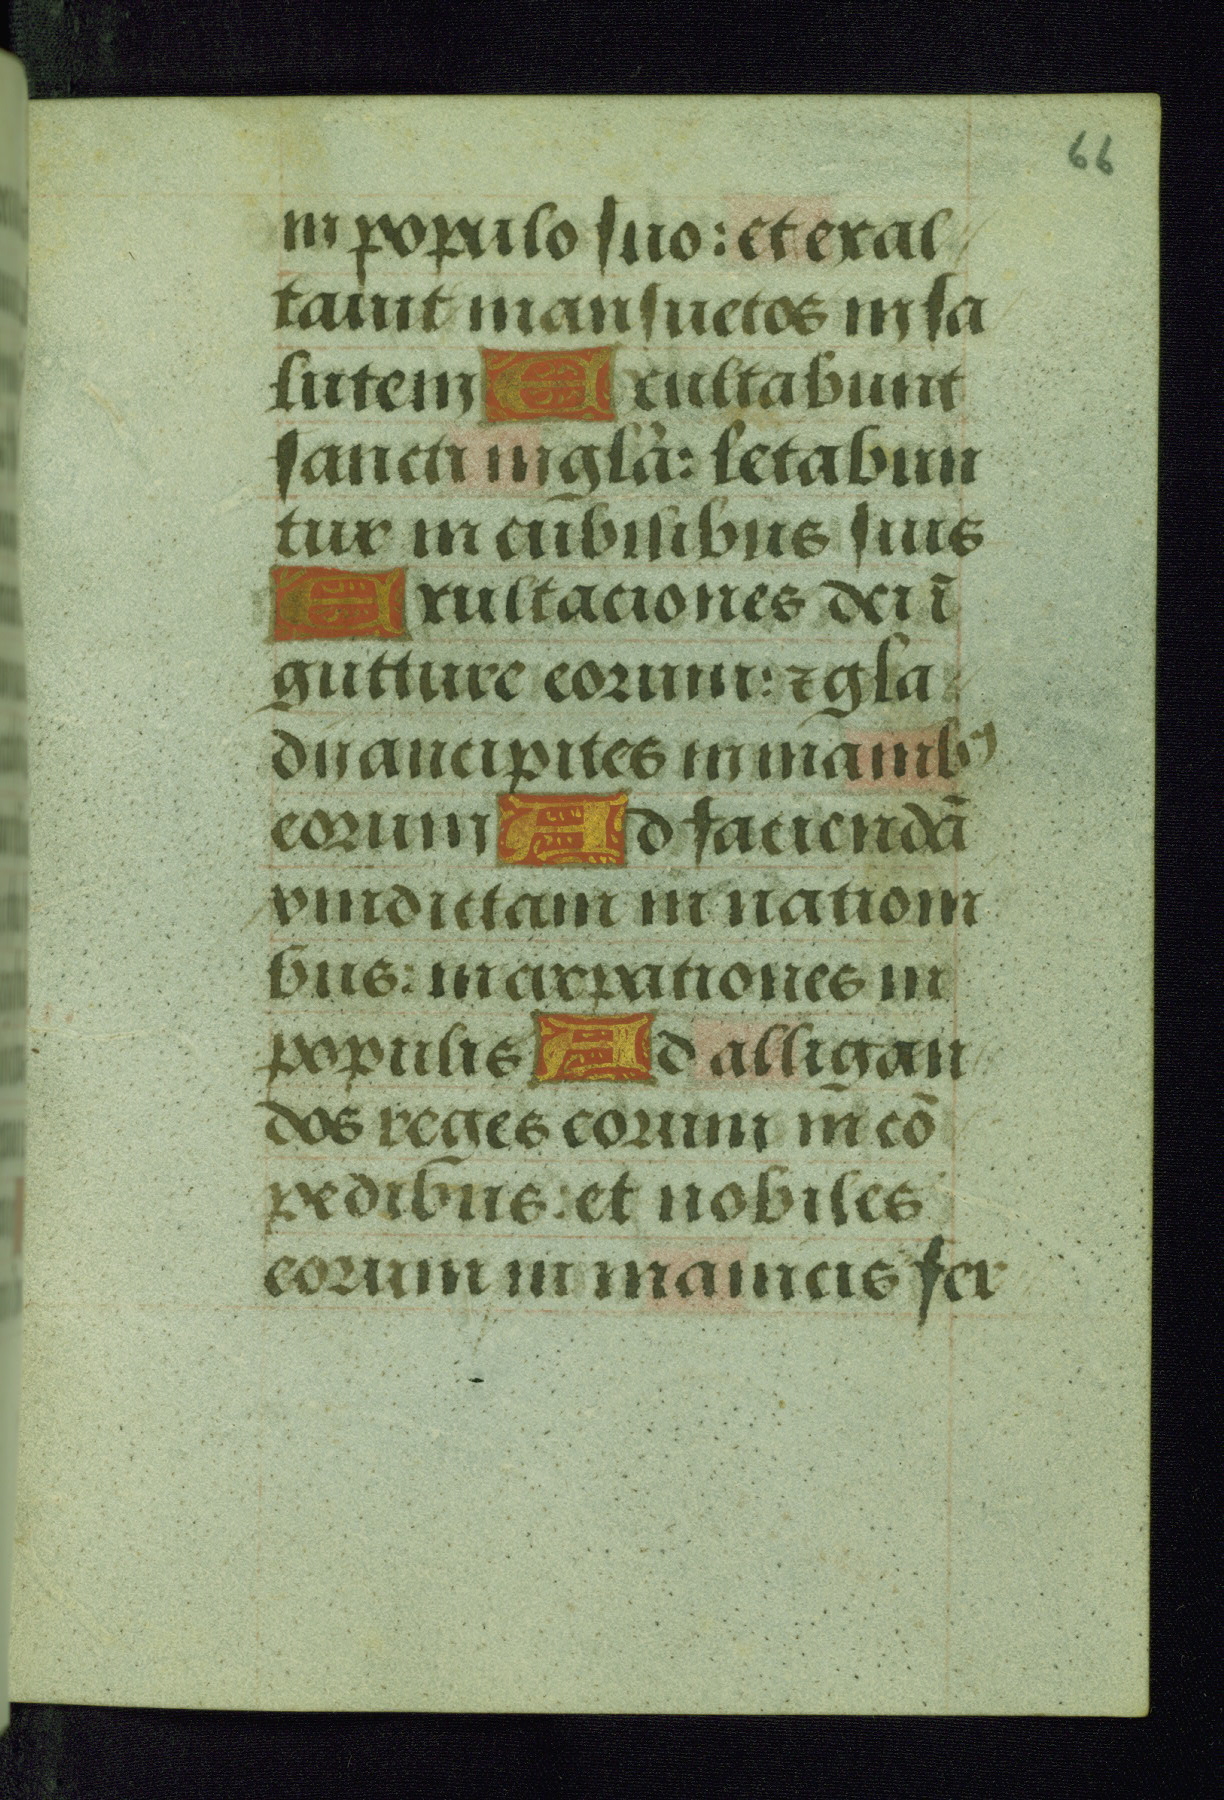 66
in populo suo: et exal
tavit mansuetos in sa
lutem Exultabunt
sancti in glā: letabun
tur in cūbilibus suis
Exultaciones dei ī
gutture eorum: ⁊ gla
dii ancipites in manibꝰ
eorum Ad faciendā
vindictam in nationi
bus: in crepationes in
populis Ad alligan
dos reges eorum in cō
pedibus: et nobiles
eorum in manicis fer